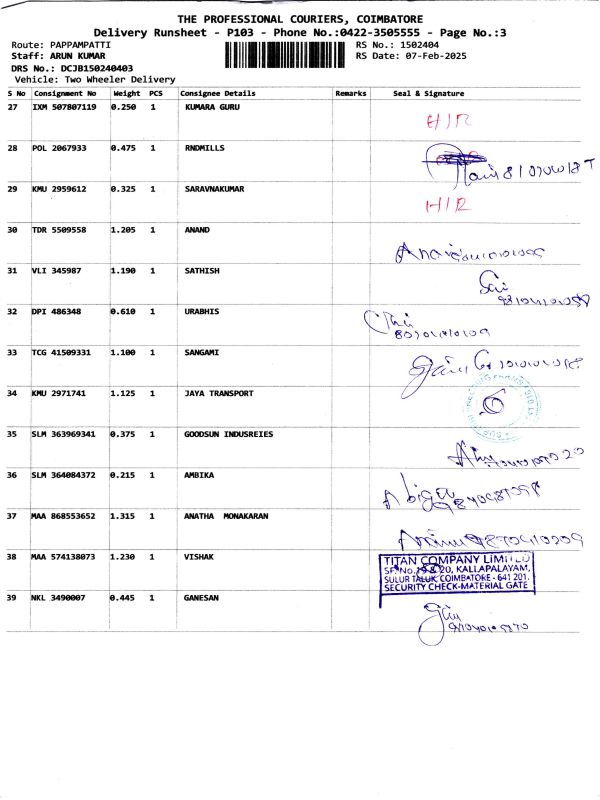 THE PROFESSIONAL COURIERS, COIMBATORE
Delivery Runsheet - P103 - Phone No.:0422-3505555 - Page No.:3
Route: PAPPAMPATTI RS No.: 1502404
Staff: ARUN KUMAR RS Date: 07-Feb-2025
DRS No.: DCJB150240403
Vehicle: Two Wheeler Delivery
S No Consignment No Weight PCS Consignee Details Remarks Seal & Signature
27 IXM 507807119 0.250 1 KUMARA GURU
28 POL 2067933 0.475 1 RNDMILLS
29 KMU 2959612 0.325 1 SARAVNAKUMAR
30 TDR 5509558 1.205 1 ANAND
31 VLI 345987 1.190 1 SATHISH
32 DPI 486348 0.610 1 URABHIS
33 TCG 41509331 1.100 1 SANGAMI
34 KMU 2971741 1.125 1 JAYA TRANSPORT
35 SLM 363969341 0.375 1 GOODSUN INDUSREIES
36 SLM 364084372 0.215 1 AMBIKA
37 MAA 868553652 1.315 1 ANATHA MONAKARAN
38 MAA 574138073 1.230 1 VISHAK
TITAN COMPANY LIMITED
SF.No. 20, KALLAPALAYAM,
SULUR TALUK, COIMBATORE - 641 201.
SECURITY CHECK-MATERIAL GATE
39 NKL 3490007 0.445 1 GANESAN